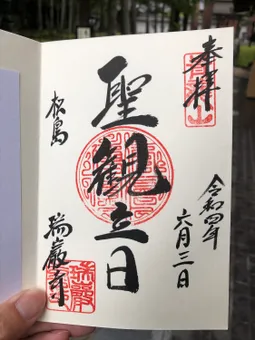 奉拝
令和四年
六月三日
聖観音
松島
瑞巌寺